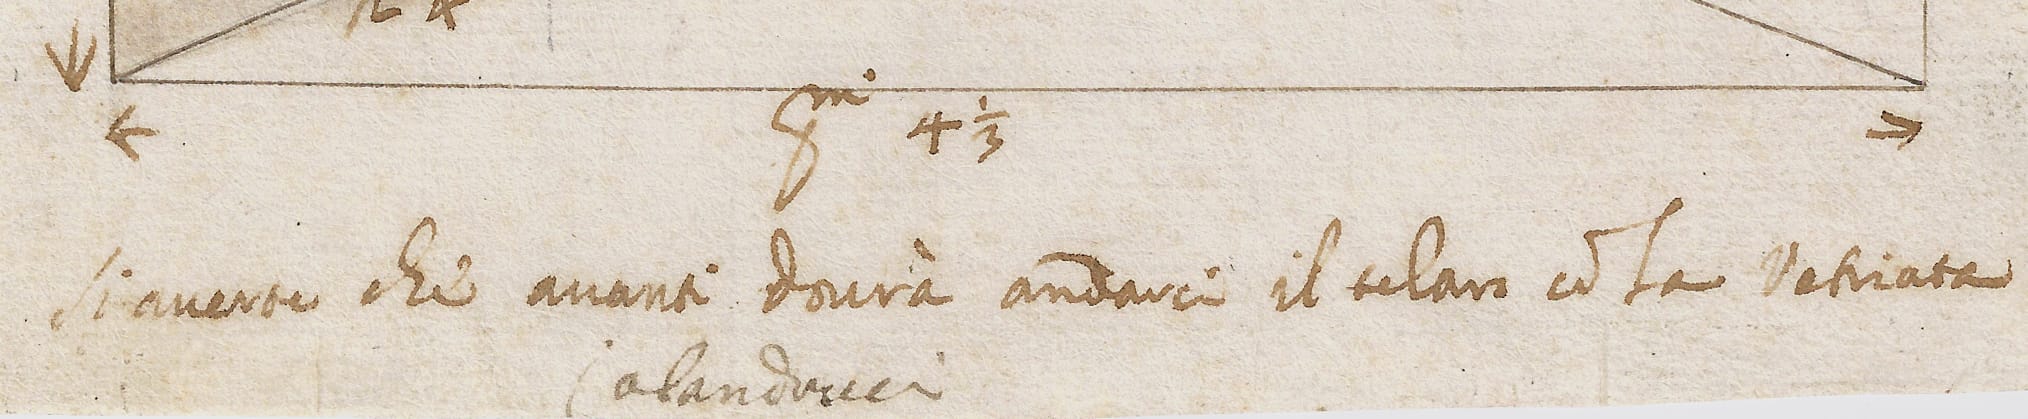 4 1/3
Si auerte che auanti dourà andarci il telaro cō la Vetriata
Calandoci